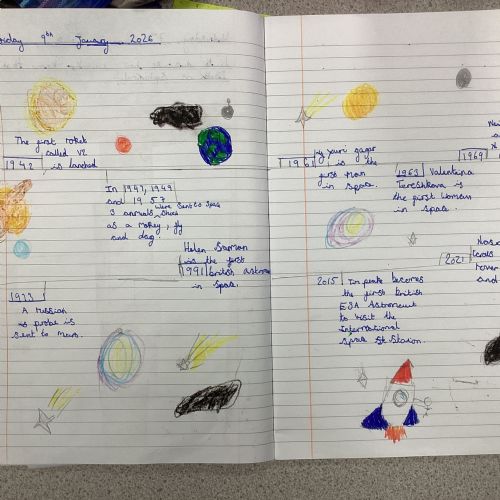 9th January 2026
The first roket
called V2
1942 is lanched
In 1947, 1949
and 1957
were Sent to Space
3 animals
as a mokey, fly
and dog.
Helen Sarman
is the first
1991 british Astronu
in Space.
1973
A russian
is probe is
Sent to Mars.
1961
is the
first man
in Space.
1963 Valentina
Tereshkova is
the first woman
in Space.
1969
2021
and
2015 Tim peake becomes
the first british
ESA Astronaut
to visit the
International
Space St Staion.